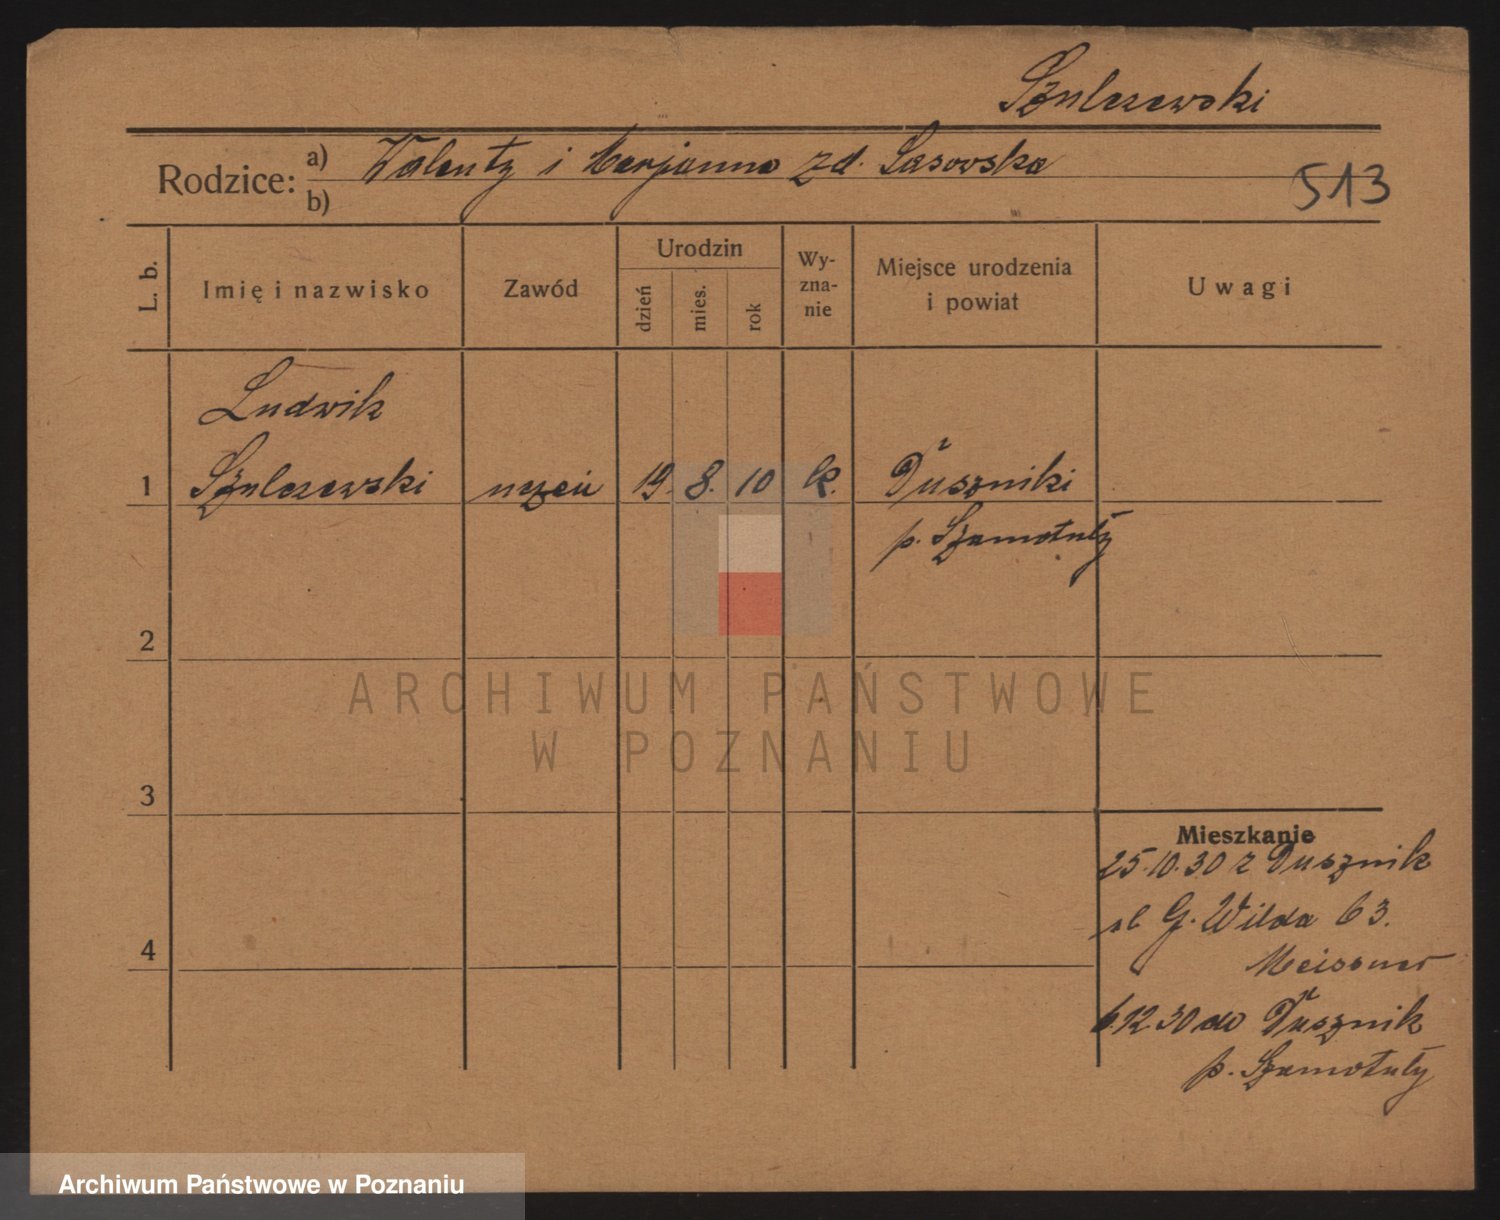 Szulczewski
Rodzice: a) Walenty i Marjanna zd. Sasowska
b)
513
L. b.
Imię i nazwisko
Zawód
Urodzin
dzień
mies.
rok
Wy-
zna-
nie
Miejsce urodzenia
i powiat
Uwagi
Ludwik
1 Szulczewski uczeń 19. 8. 10 k. Duszniki
p. Szamotuły
2
ARCHIWUM PAŃSTWOWE
W POZNANIU
3
Mieszkanie
25.10.30 z Dusznik
G. Wilda 63.
Meissner
4
6.12.30 do Dusznik
p. Szamotuły
Archiwum Państwowe w Poznaniu